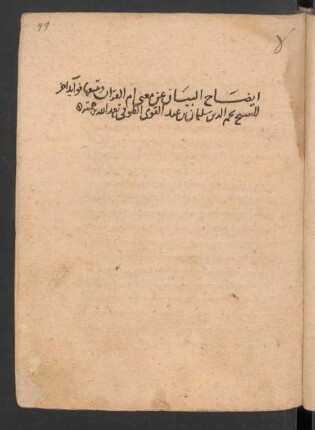 99
٨
ايضاح البيان عن معنى ام القران وتتبعها فوايد اخر
للشيخ نجم الدين سليمان بن عبد القوى الطوفى تغمد الله برحمته